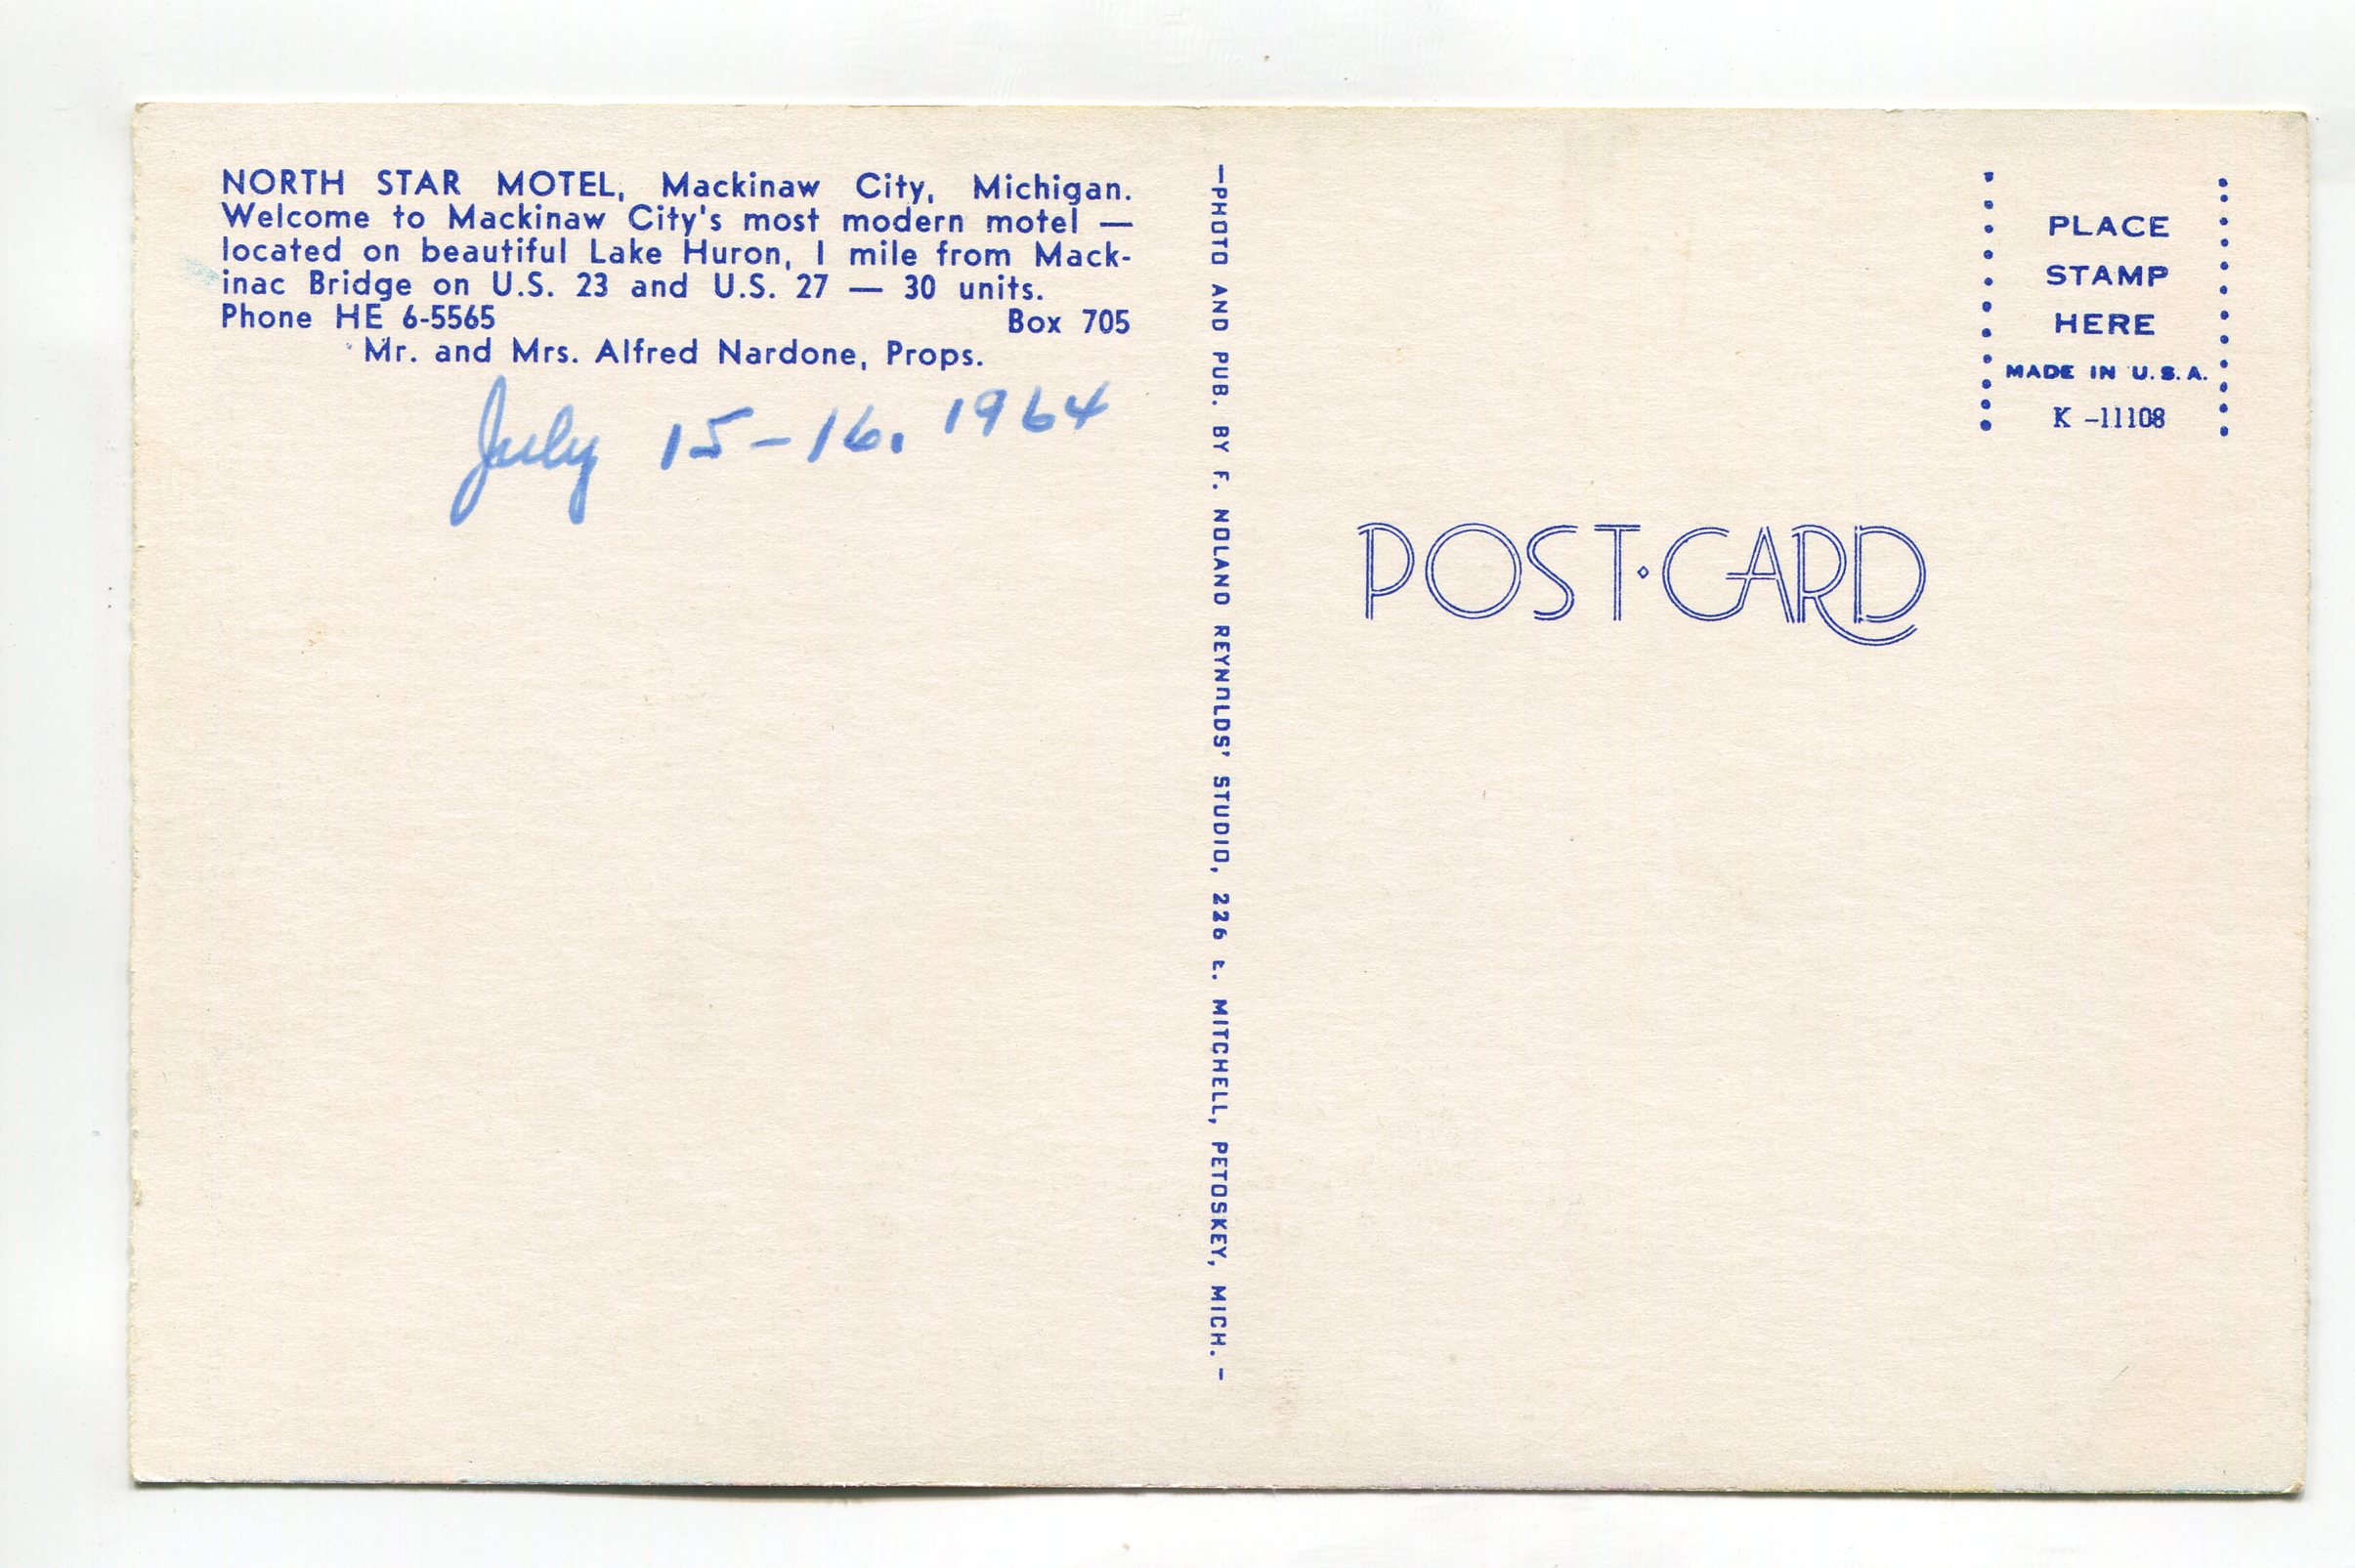 NORTH STAR MOTEL, Mackinaw City, Michigan.
Welcome to Mackinaw City's most modern motel —
located on beautiful Lake Huron, 1 mile from Mack-
inac Bridge on U.S. 23 and U.S. 27 — 30 units.
Phone HE 6-5565 Box 705
Mr. and Mrs. Alfred Nardone, Props.
July 15-16. 1964
—PHOTO AND PUB. BY F. NOLAND REYNOLDS' STUDIO, 226 E. MITCHELL, PETOSKEY, MICH. -
PLACE
STAMP
HERE
MADE IN U.S.A.
K -11108
POST·CARD